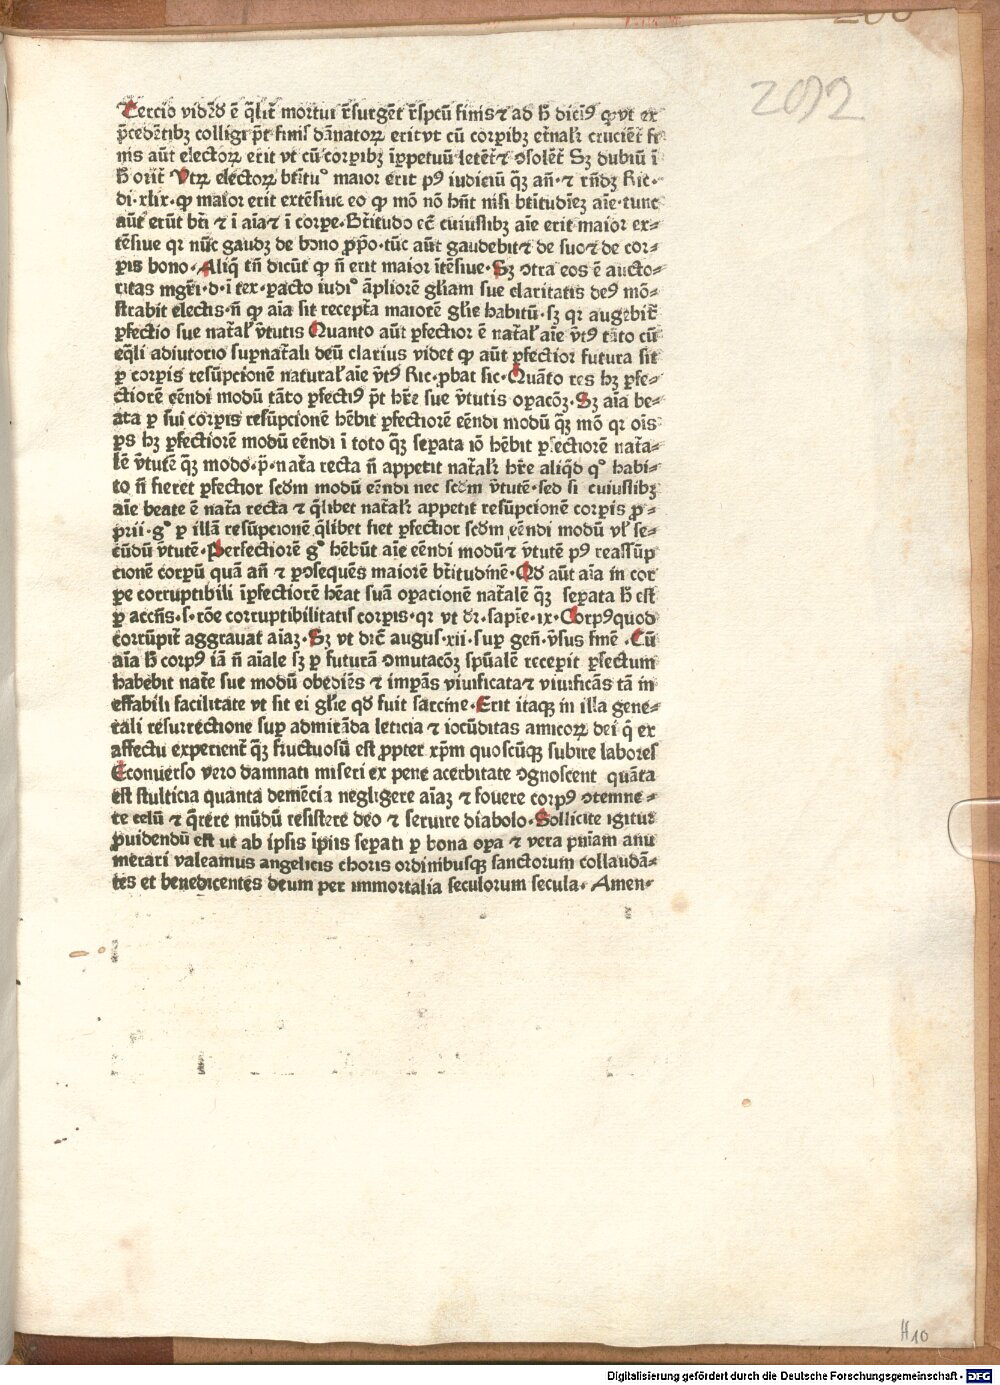 2092
Tercio vidēd ē q̄lit᷑ mortui r̄surgēt r̄spcū finis ⁊ ad h̄ dicit᷒ ꝙ vt ex
p̄cedētibꝫ colligi pt̄ finis dānatoꝝ erit vt cū corpibꝫ et̄nalr̄ cruciēt᷑ fi
nis aūt electoꝝ erit vt cū corpibꝫ ip̄petuū letēt᷑ ⁊ ↄsolēt᷑ Sꝫ dubiū ī
h̄ orit᷑ Vtꝝ electoꝝ btītu᷒ maior erit p᷒ iudiciū q̄ꝫ añ · ⁊ rn̄dꝫ Ric ·
di · xlix · ꝙ maior erit extēsiue eo ꝙ mō nō hn̄t nisi btītudīeꝫ aīe · tunc
aūt erūt btī ⁊ ī aīa ⁊ ī corpe · Btītudo ec̄ cuiuslibꝫ aīe erit maior ex⸗
tēsiue qr nūc gaudꝫ de bono ꝓp̄o · tūc aūt gaudebit ⁊ de suo ⁊ de cor⸗
pis bono · Aliq̄ tn̄ dicūt ꝙ n̄ erit maior ītēsiue · Sꝫ ↄtra eos ē aucto⸗
ritas mgr̄i · d · ī tex · pacto iudi᷒ āpliorē gl̄iam sue claritatis de᷒ mō⸗
strabit electis · n̄ ꝙ aīa sit recepta maiorē gl̄ie habitū · sꝫ qr augebit᷑
ꝑfectio sue nat̄al᷑ v̄tutis Quanto aūt ꝑfectior ē nat̄al᷑ aīe v̄t᷒ tāto cū
eq̄li adiutorio suꝑnat̄ali deū clarius videt ꝙ aūt ꝑfectior futura sit
ꝑ corpis resūpcionē natural᷑ aīe v̄t᷒ Ric · ꝓbat sic · Quāto res hꝫ ꝑfe⸗
ctiorē eēndi modū tāto ꝑfecti᷒ pt̄ hr̄e sue v̄tutis oꝑacōꝫ · Sꝫ aīa be⸗
ata ꝑ sui corpis resūpcionē hēbit ꝑfectiorē eēndi modū q̄ꝫ mō qr oīs
ps hꝫ ꝑfectiorē modū eēndi ī toto q̄ꝫ seꝑata iō hēbit ꝑfectiorē nat̄a⸗
lē v̄tutē q̄ꝫ modo · p̄ · nat̄a recta n̄ appetit nat̄alr̄ hr̄e aliq̄d q᷒ habi⸗
to n̄ fieret ꝑfectior scd̄m modū eēndi nec scd̄m v̄tutē · sed si cuiuslibꝫ
aīe beate ē nat̄a recta ⁊ q̄libet nat̄alr̄ appetit resūpcionē corpis ꝓ⸗
prii · g᷒ ꝑ illā resūpcionē q̄libet fiet ꝑfectior scd̄m eēndi modū vl᷑ se⸗
cūdū v̄tutē · Perfectiorē g᷒ hēbūt aīe eēndi modū ⁊ v̄tutē p᷒ reassūp
cionē corpū quā añ ⁊ ꝑↄsequēs maiorē btītudinē · Qd̄ aūt aīa in cor
pe corruptibili īꝑfectiorē hēat suā oꝑacionē nat̄alē q̄ꝫ seꝑata h̄ est
ꝑ accn̄s · s · rōe corruptibilitatis corpis · qr vt dr̄ · sapīe · ix · Corp᷒ quod
corrūpit᷑ aggrauat aīaꝫ · Sꝫ vt dic̄ augus · xii · suꝑ gen̄ · v̄sus finē · Cū
aīa h̄ corp᷒ iā n̄ aīale sꝫ ꝑ futurā ↄmutacōꝫ spūalē receꝑit ꝑfectum
habebit nat̄e sue modū obediēs ⁊ imꝑās viuificata ⁊ viuificās tā in
effabili facilitate vt sit ei gl̄ie qd̄ fuit sarcine · Erit itaqꝫ in illa gene⸗
rali resurrectione suꝑ admirāda leticia ⁊ iocūditas amicoꝝ dei q̄ ex
affectu experient᷑ q̄ꝫ fructuosū est ꝓpter xp̄m quoscūqꝫ subire labores
Econuerso vero damnati miseri ex pene acerbitate ↄgnoscent quāta
est stulticia quanta demēcia negligere aīaꝫ ⁊ fouere corp᷒ ↄtemne⸗
re celū ⁊ q̄rere mūdū resistere deo ⁊ seruire diabolo · Sollicite igitur
ꝓuidendū est ut ab ip̄sis īpiis seꝑati ꝑ bona oꝑa ⁊ vera pniām anu
merari valeamus angelicis choris ordinibusqꝫ sanctorum collaudā⸗
tes et benedicentes deum per immortalia seculorum secula · Amen ·
H 10
Digitalisierung gefördert durch die Deutsche Forschungsgemeinschaft - DFG